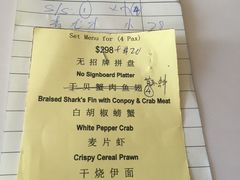 S/S. ① 
Set Menu for (4 Pax)
$298
无招牌拼盘
No Signboard Platter
干贝蟹肉鱼翅
Braised Shark's Fin with Conpoy & Crab Meat
白胡椒螃蟹
White Pepper Crab
麦片虾
Crispy Cereal Prawn
干烧伊面